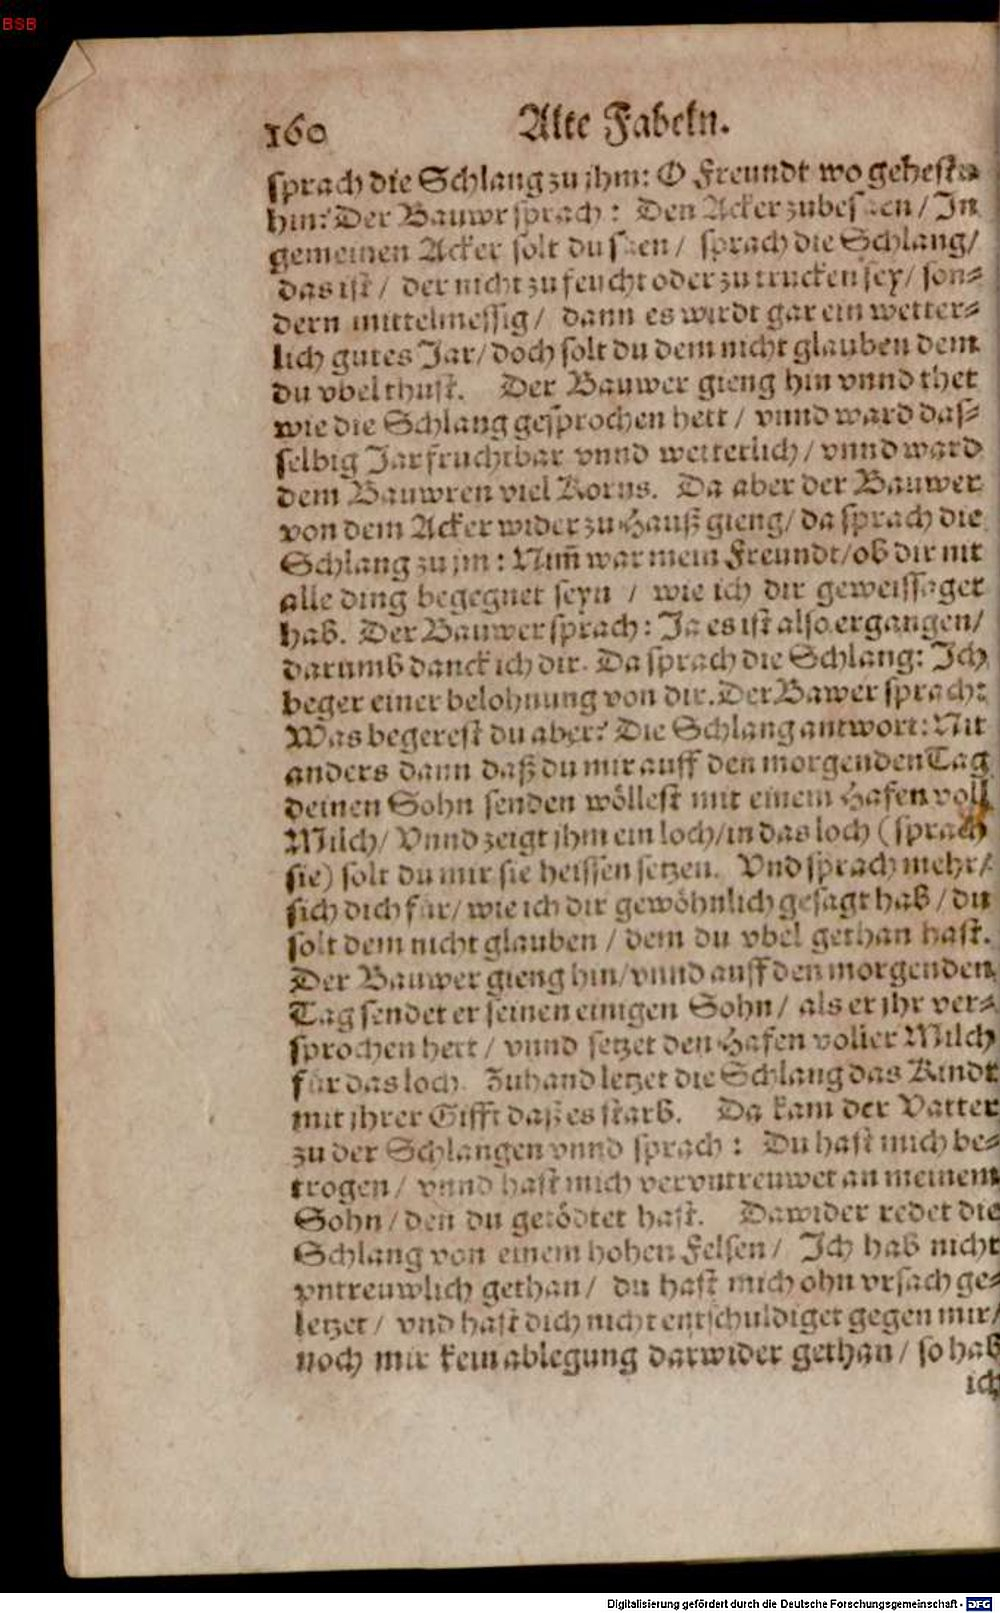 BSB
160 Alte Fabeln.
sprach die Schlang zu jhm: O Freundt wo gehestu
hin? Der Bauwr sprach: Den Acker zubesäen / In
gemeinen Acker solt du säen / sprach die Schlang /
das ist / der nicht zu feucht oder zu trucken sey / son-
dern mittelmessig / dann es wirdt gar ein wetter-
lich gutes Jar / doch solt du dem nicht glauben dem
du vbel thust. Der Bauwer gieng hin vnnd thet
wie die Schlang gesprochen hett / vnnd ward das-
selbig Jar fruchtbar vnnd wetterlich / vnnd ward
dem Bauwren viel Korns. Da aber der Bauwer
von dem Acker wider zu Hauß gieng / da sprach die
Schlang zu jm: Nim̃ war mein Freundt / ob dir nit
alle ding begegnet seyn / wie ich dir geweissaget
hab. Der Bauwer sprach: Ja es ist also ergangen /
darumb danck ich dir. Da sprach die Schlang: Ich
beger einer belohnung von dir. Der Bawer sprach:
Was begerest du aber? Die Schlang antwort: Nit
anders dann daß du mir auff den morgenden Tag
deinen Sohn senden wöllest mit einem Hafen voll
Milch / Vnnd zeigt jhm ein loch / in das loch (sprach
sie) solt du mir sie heissen setzen. Vnd sprach mehr /
sich dich für / wie ich dir gewöhnlich gesagt hab / du
solt dem nicht glauben / dem du vbel gethan hast.
Der Bauwer gieng hin / vnnd auff den morgenden
Tag sendet er seinen einigen Sohn / als er jhr ver-
sprochen hett / vnnd setzet den Hafen voller Milch
für das loch. Zuhand letzet die Schlang das Kindt
mit jhrer Gifft daß es starb. Da kam der Vatter
zu der Schlangen vnnd sprach: Du hast mich be-
trogen / vnnd hast mich vervntreuwet an meinem
Sohn / den du getödtet hast. Dawider redet die
Schlang von einem hohen Felsen / Ich hab nicht
vntreuwlich gethan / du hast mich ohn vrsach ge-
letzet / vnd hast dich nicht entschuldiget gegen mir /
noch mir kein ablegung darwider gethan / so hab
ich
Digitalisierung gefördert durch die Deutsche Forschungsgemeinschaft - DFG